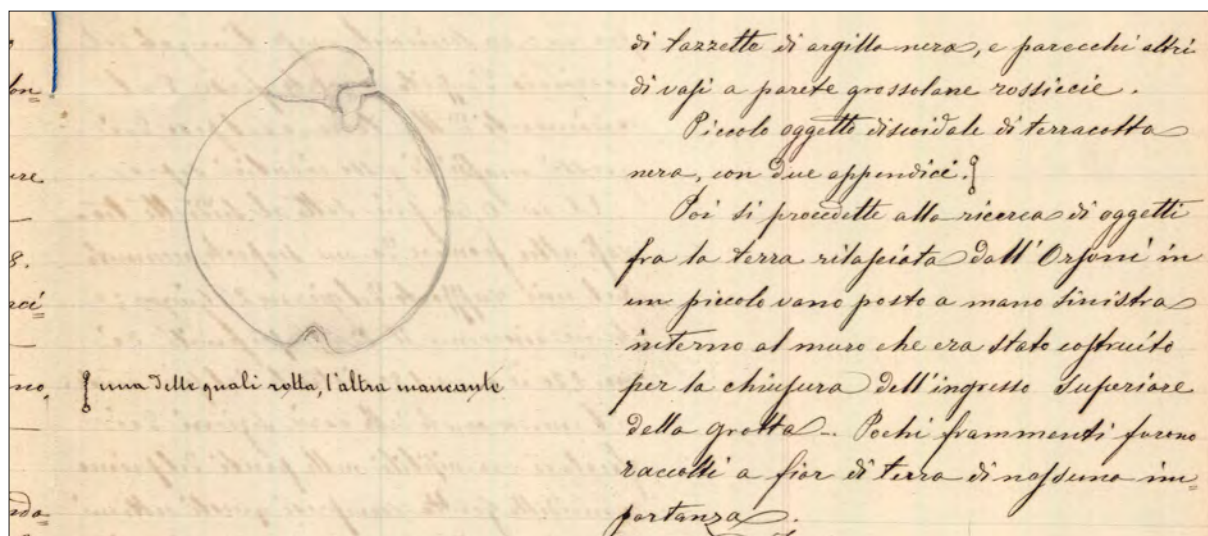 on=
ure
8.
no.
una delle quali rotta, l'altra mancante
di tazzette di argilla nera, e parecchi altri
di vasi a parete grossolane rossiccie.
Piccolo oggetto discoidale di terracotta
nera, con due appendici.
Poi si procedette alla ricerca di oggetti
fra la terra rilasciata dall'Orsoni in
un piccolo vano posto a mano sinistra
interno al muro che era stato costruito
per la chiusura dell'ingresso superiore
della grotta _. Pochi frammenti furono
raccolti a fior di terra di nessuna im=
portanza.